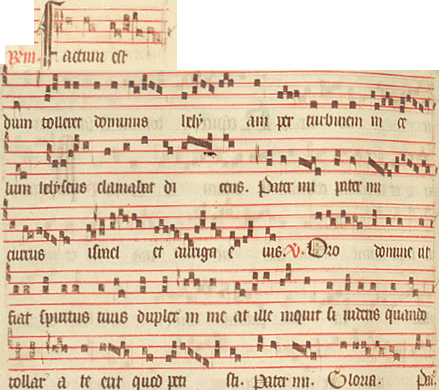 Rom. Factum est
dum tolleret dominus hely am per turbinem in ce
lum helyseus clamabat di cens. Pater mi pater mi
currus israel et auriga e ius. V. Oro domine ut
fiat spiritus tuus duplex in me at ille inquit si uideris quando
tollar a te erit quod peti sti. Pater mi. Gloria. P